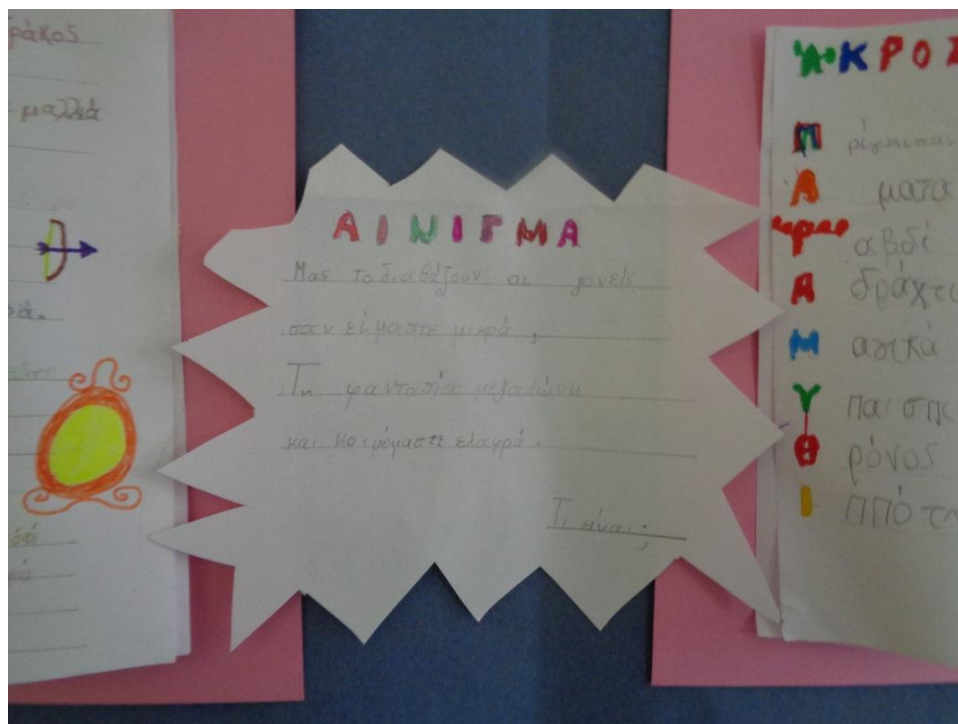 ράκος
μαλλιά
ΑΙΝΙΓΜΑ
Μας το διαβάζουν οι γονείς
σαν είμαστε μικρά,
Τη φαντασία μεγαλώνει
και κοιμόμαστε ελαφρά.
Τι είναι;
ΑΚΡΟΣ
Π ρίγκιπας
Α ματα
Ρ αβδί
Α δράχτι
Μ αγικά
Υ
Θ ρόνος
Ι ππότη